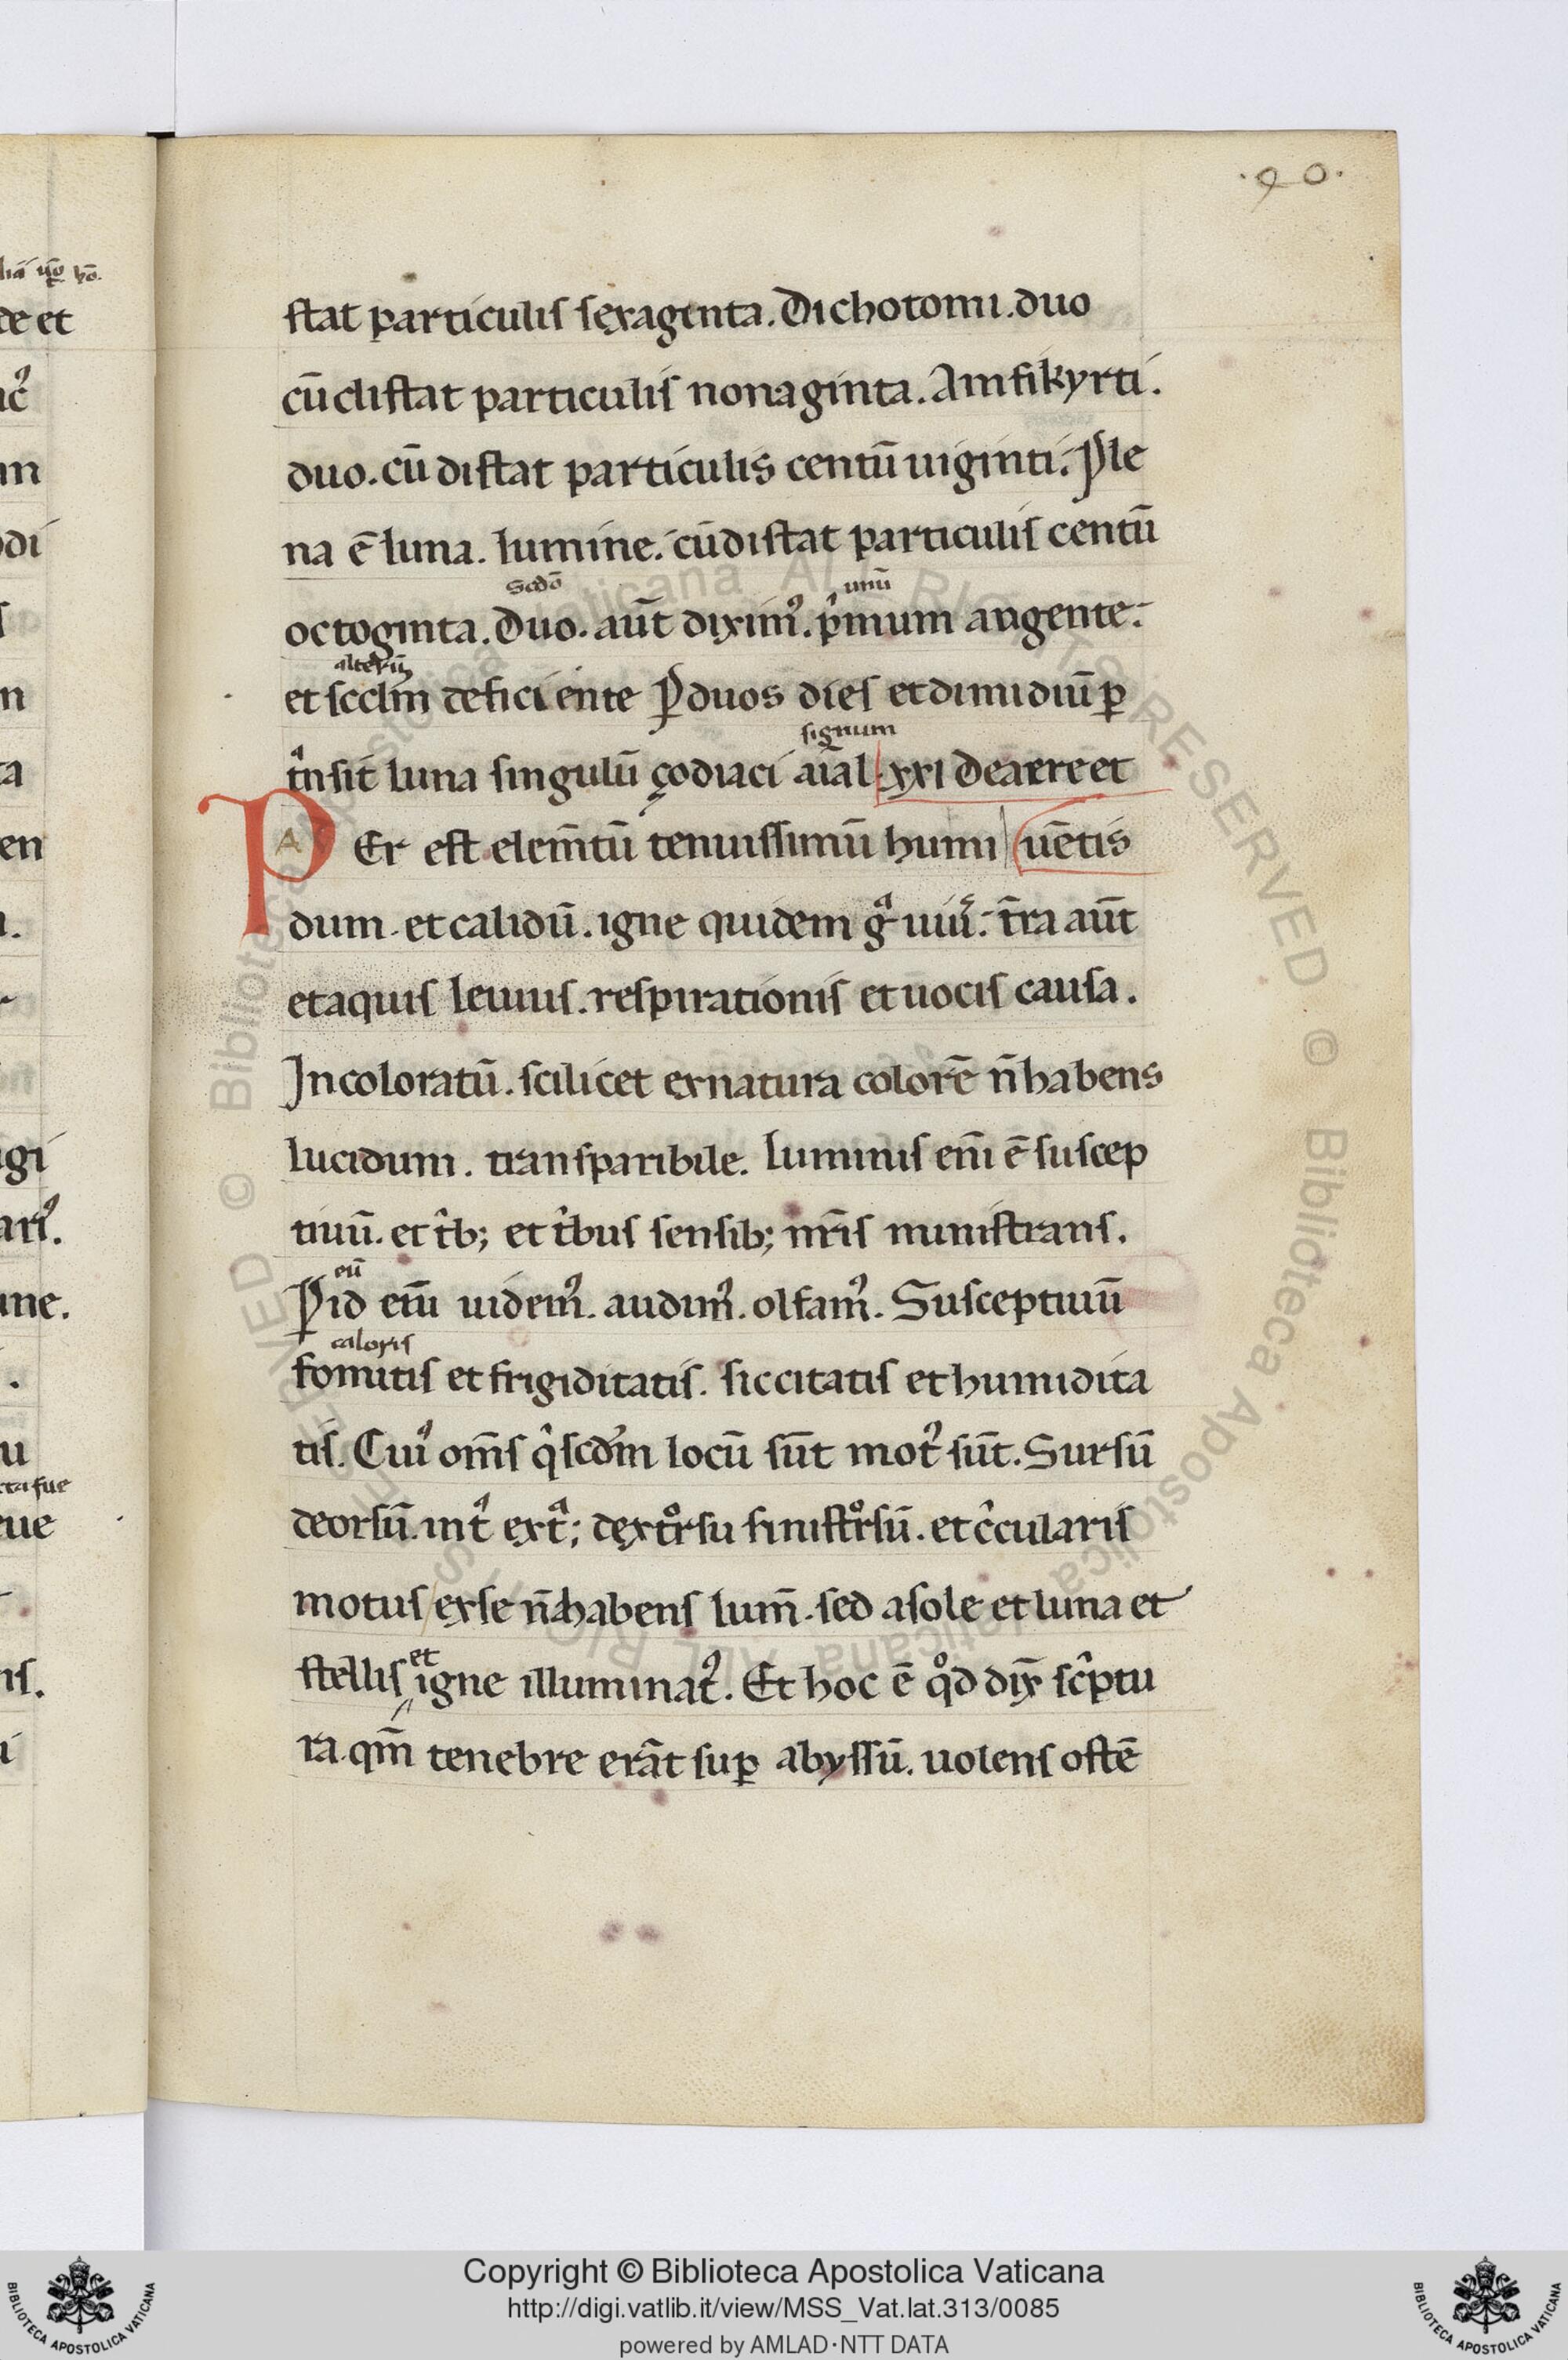 .90.
stat particulis sexaginta. Dichotomi. duo
cū distat particulis nonaginta. Amfikyrti.
duo. cū distat particulis centū uiginti. Ple
na ē luna. lumine. cū distat particulis centū
scdō unū
octoginta. Duo. aūt diximꝰ. pͥmum augente.
alterū
et scdm deficiente Per duos dies et dimidiū ꝑ
signum
tͣnsit luna singulū çodiaci aial. xxi De aere et
P A Er est elem̄tū tenuissimū humi uētis
dum. et calidū. igne quidem gͣuiꝰ. t̄ra aūt
et aquis leuius. respirationis et uocis causa.
Incoloratū. scilicet ex natura colorē n̄ habens
lucidum. transparibile. Luminis eni ē suscep
tiuū. et tͥb; et tͥbus sensib; nr̄is ministrans.
eū
P id eni uidemꝰ. audimꝰ. olfamꝰ. Susceptiuū
caloris
fomitis et frigiditatis. siccitatis et humidita
tis. Cuiꝰ om̄s qͥ scd̄m locū sūt motꝰ sūt. Sursū
deorsū. intͣ extͣ; dextoͬsu sinistoͬsū. et cͥcularis
motus / ex se n̄ habens lum̄. sed a sole et luna et
et
stellis igne illuminatꝰ. Et hoc ē qͦd dix̄ scͥptu
ra. qm̄ tenebre erāt suꝑ abyssū. uolens ostē
liā
de et
gi
ariꝰ.
ue
Copyright © Biblioteca Apostolica Vaticana
http://digi.vatlib.it/view/MSS_Vat.lat.313/0085
powered by AMLAD·NTT DATA
BIBLIOTECA APOSTOLICA VATICANA
BIBLIOTECA APOSTOLICA VATICANA
© Biblioteca Apostolica Vaticana ALL RIGHTS RESERVED © Biblioteca Apostolica Vaticana ALL RIGHTS RESERVED